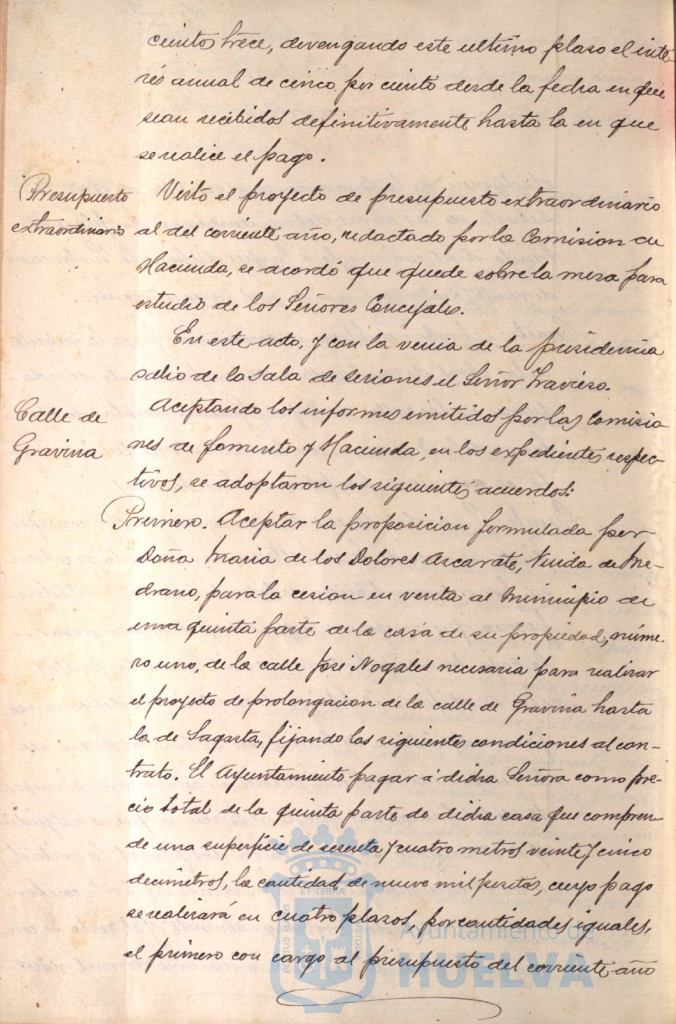 cientos trece, devengando este ultimo plaso el inte-
rés anual de cinco por ciento desde la fecha en que
sean recibidos definitivamente hasta la en que
se realice el pago.
Presupuesto
extraordinario
Visto el proyecto de presupuesto extraordinario
al del corriente año, redactado por la Comision de
Hacienda, se acordó que quede sobre la mesa para
estudio de los Señores Concejales.
En este acto, y con la venia de la presidencia
salio de la Sala de sesiones el Señor Travieso.
Calle de
Gravina
Aceptando los informes emitidos por las Comisio-
nes de fomento y Hacienda, en los expedientes respec-
tivos, se adoptaron los siguientes acuerdos:
Primero. Aceptar la proposicion formulada por
Doña Maria de los Dolores Ascarate, Viuda de Me-
drano, para la cesion en venta al Municipio de
una quinta parte de la casa de su propiedad, núme-
ro uno, de la calle José Nogales necesaria para realizar
el proyecto de prolongacion de la calle de Gravina hasta
la de Sagasta, fijando las siguientes condiciones al con-
trato. El Ayuntamiento pagará á dicha Señora como pre-
cio total de la quinta parte de dicha casa que compren-
de una superficie de sesenta y cuatro metros veinte y cinco
decimetros, la cantidad de nueve mil pesetas, cuyo pago
se realizará en cuatro plasos, por cantidades iguales,
el primero con cargo al presupuesto del corriente año
Ayuntamiento de
HUELVA